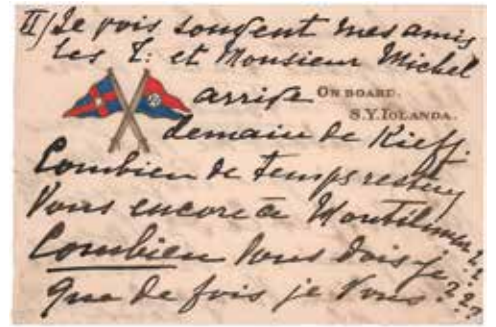 II/ Je vois souvent mes amis
les T: et Monsieur Michel
arrive
ON BOARD.
S.Y. IOLANDA.
demain de Kieff.
Combien de temps restez
Vous encore à Montélimar??
Combien Vous dois-je???
que de fois je Vous